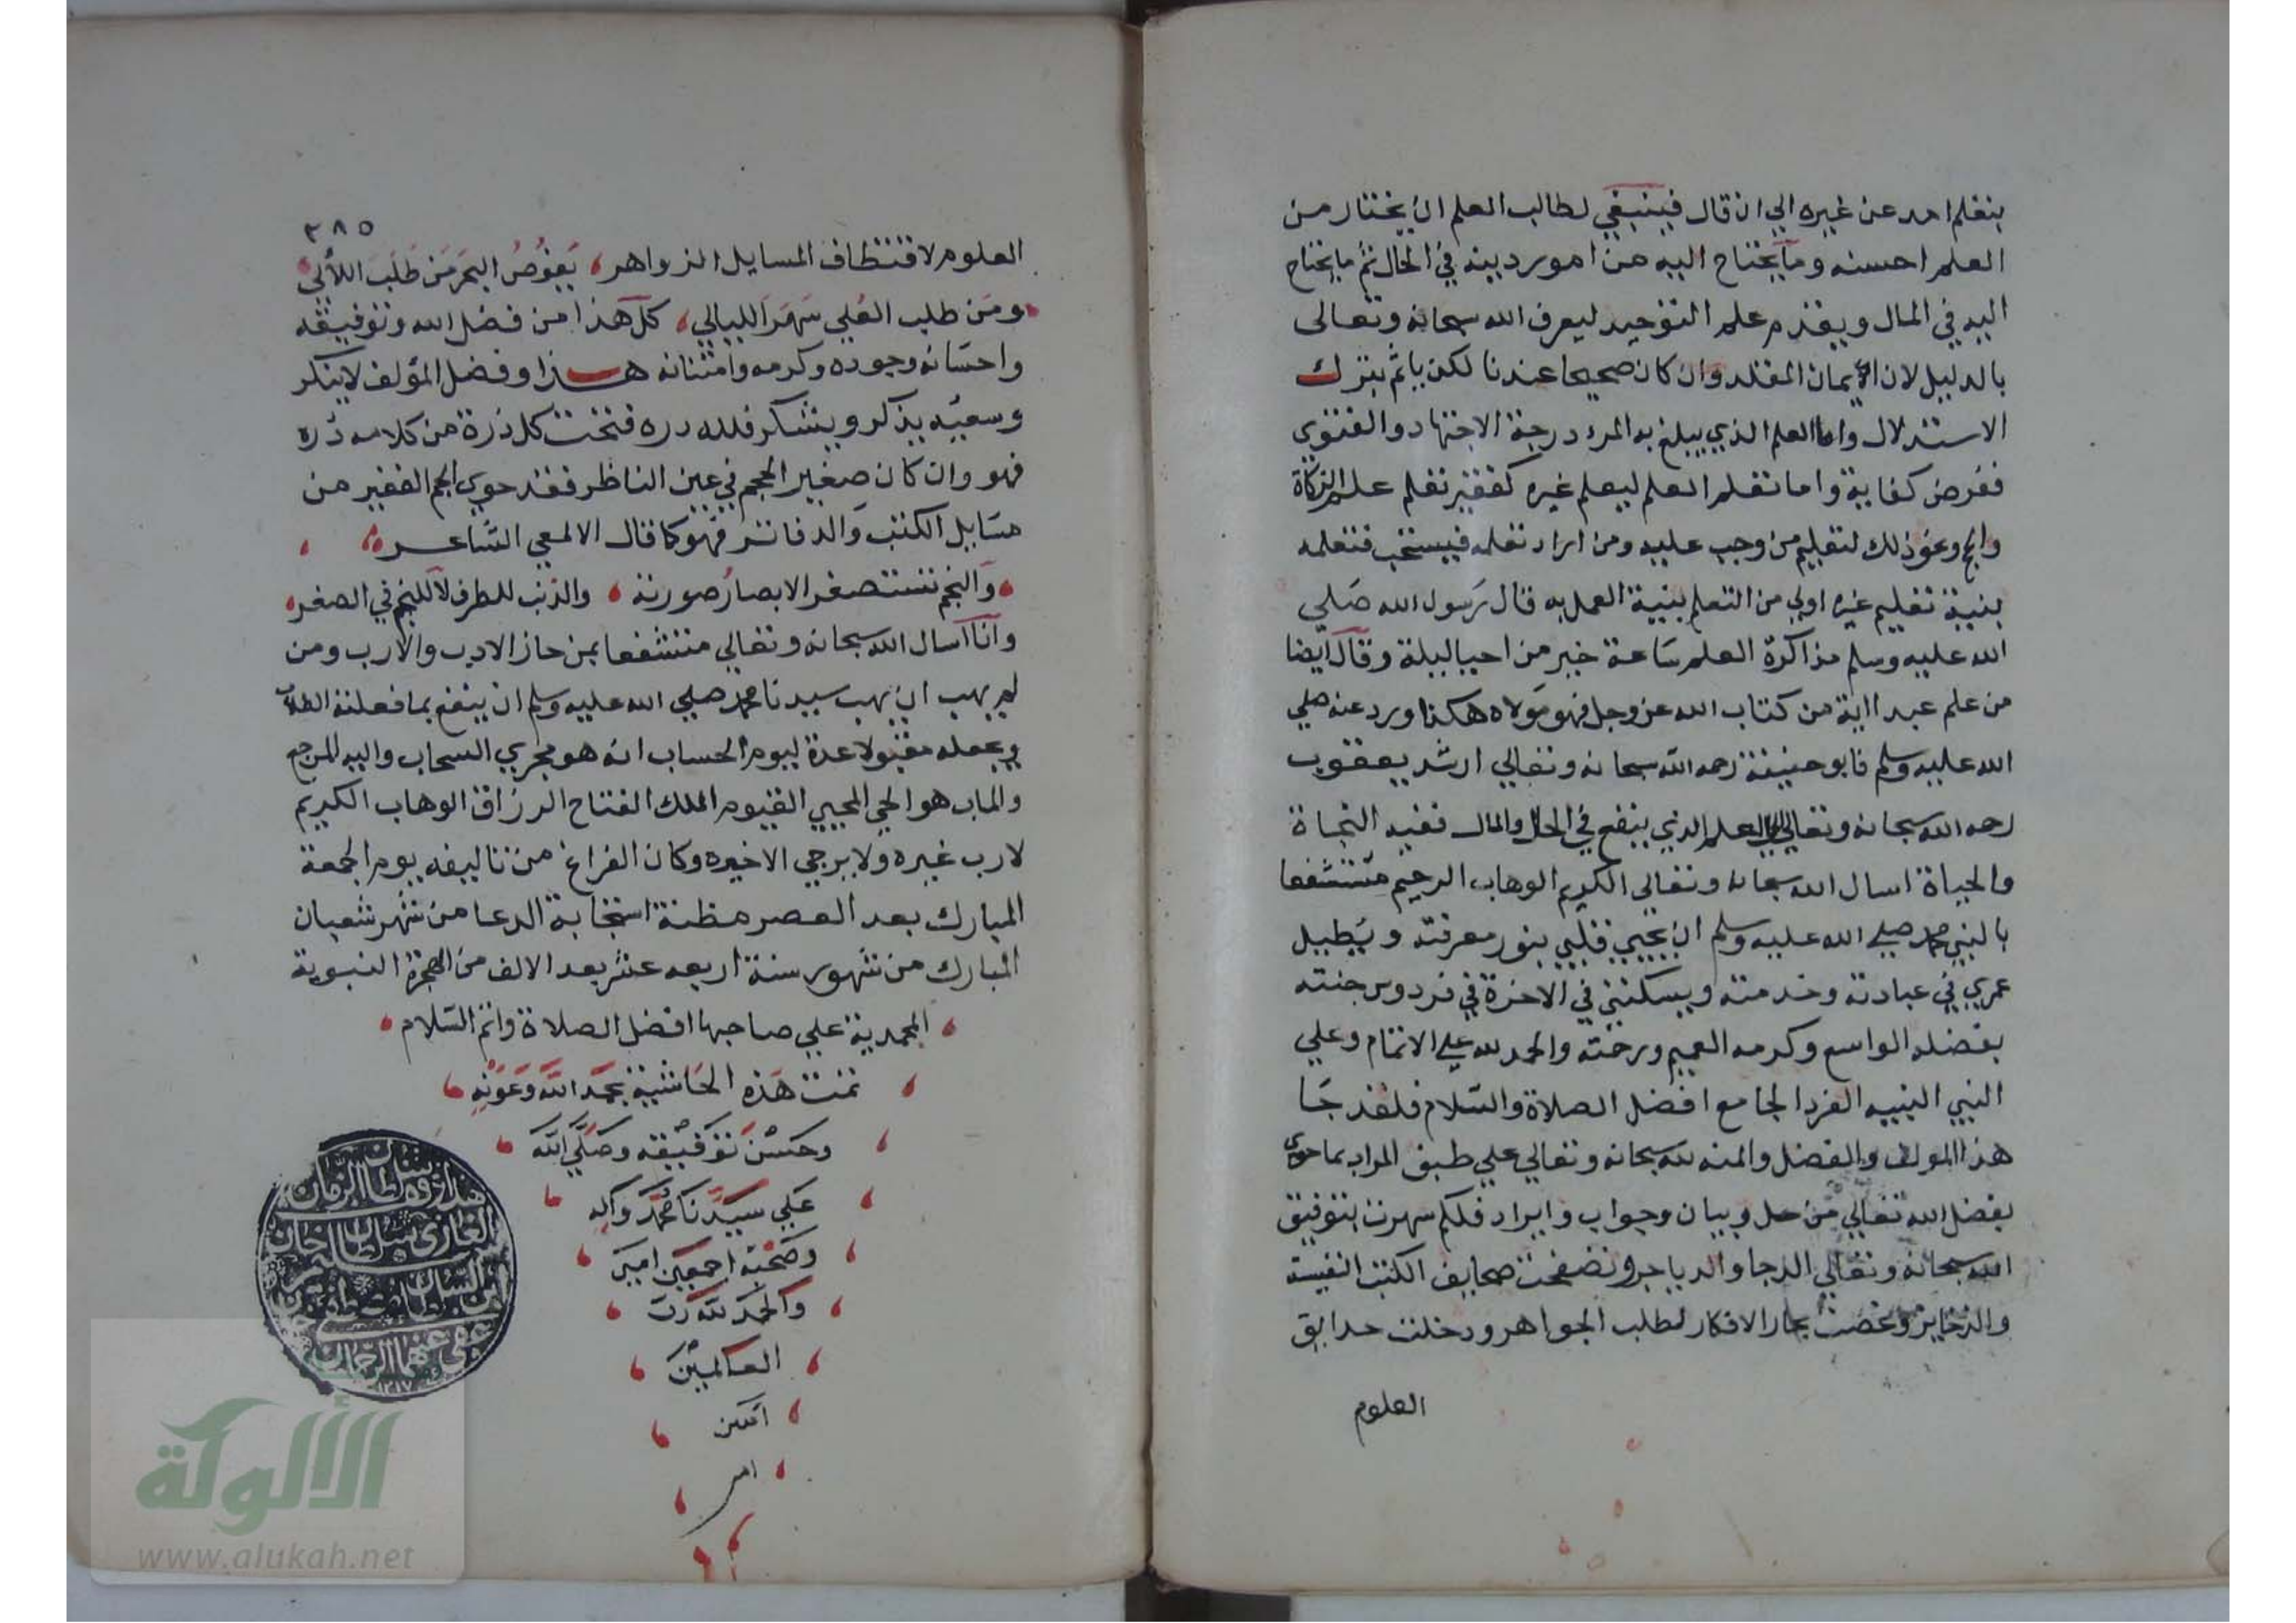 بتعلم احد عن غيره الي ان قال فينبغي لطالب العلم ان يختار من
العلم احسنه وما يحتاج اليه من امور دينه في الحال ثم ما يحتاج
اليه في المال ويقدم علم التوحيد ليعرف الله سبحانه وتعالى
بالدليل لان ايمان المقلد وان كان صحيحا عندنا لكن ياثم بترك
الاستدلال واما العلم الذي يبلغ به المرء درجة الاجتهاد والفتوي
ففرض كفاية واما تعلم العلم ليعلم غيره كفقير تعلم علم الزكاة
والحج ونحو ذلك لتعليم من وجب عليه ومن اراد تعلمه فيستحب فتعلمه
بنية تعليم غيره اولي من التعلم بنية العمل به قال رسول الله صلي
الله عليه وسلم مذاكرة العلم ساعة خير من احيا ليلة وقال ايضا
من علم عبدا اية من كتاب الله عز وجل فهو مولاه هكذا ورد عنه صلي
الله عليه وسلم فابو حنيفة رحمه الله سبحانه وتعالي ارشد يعقوب
رحمه الله سبحانه وتعالي العلم الذي ينفع في الحال والمال ففيه النجاة
والحياة اسال الله سبحانه وتعالى الكريم الوهاب الرحيم متشفعا
بالنبي محمد صلي الله عليه وسلم ان يحيي قلبي بنور معرفته ويطيل
عمري في عبادته وخدمته ويسكنني في الاخرة في فردوس جنته
بفضله الواسع وكرمه العميم ورحمته والحمد لله علي الاتمام وعلي
النبي النبيه الفرد الجامع افضل الصلاة والسلام فلقد جا
هذا المولف والفضل والمنه لله سبحانه وتعالي علي طبق المراد بما حوي
بفضل الله تعالي من حل وبيان وجواب وايراد فلكم سهرت بتوفيق
الله سبحانه وتعالي الدجا والدياجر وتصفحت صحايف الكتب النفيسة
والذخاير وغصت بحار الافكار لطلب الجواهر ودخلت حدايق
العلوم
٣٨٥
العلوم لاقتطاف المسايل الزواهر يغوص البحر من طلب اللألي
ومن طلب العلي سهر الليالي كل هذا من فضل الله وتوفيقه
واحسانه وجوده وكرمه وامتنانه هذا وفضل المؤلف لا ينكر
وسعيه يذكر ويشكر فلله دره فتحت كل ذرة من كلامه درة
فهو وان كان صغير الحجم في عين الناظر فقد حوي الجم الغفير من
مسايل الكتب والدفاتر فهو كما قال الالمعي الشاعر
والنجم تستصغر الابصار صورته والذنب للطرف لا للنجم في الصغر
وانا اسال الله سبحانه وتعالي متشفعا بمن حاز الادب والارب ومن
لم يهب ان يهب سيدنا محمد صلي الله عليه وسلم ان ينفع بما فعلته الطلاب
ويجعله مقبولا عدة ليوم الحساب انه هو مجري السحاب واليه المرجع
والماب هو الحي المحيي القيوم الملك الفتاح الرزاق الوهاب الكريم
لا رب غيره ولا يرجي الا خيره وكان الفراغ من تاليفه يوم الجمعة
المبارك بعد العصر مظنة استجابة الدعا من شهر شعبان
المبارك من شهور سنة اربعه عشر بعد الالف من الهجرة النبوية
المحمدية علي صاحبها افضل الصلاة واتم السلام
تمت هذه الحاشية بحمد الله وعونه
وحسن توفيقه وصلي الله
علي سيدنا محمد واله
وصحبه اجمعين امين
والحمد لله رب
العالمين
امين
ام
هذا وقف سلطان الزمان
الغازي سلطان سليم خان
ابن السلطان مصطفى خان
عفى عنهما الرحمن
١٢١٧
الألوكة
www.alukah.net